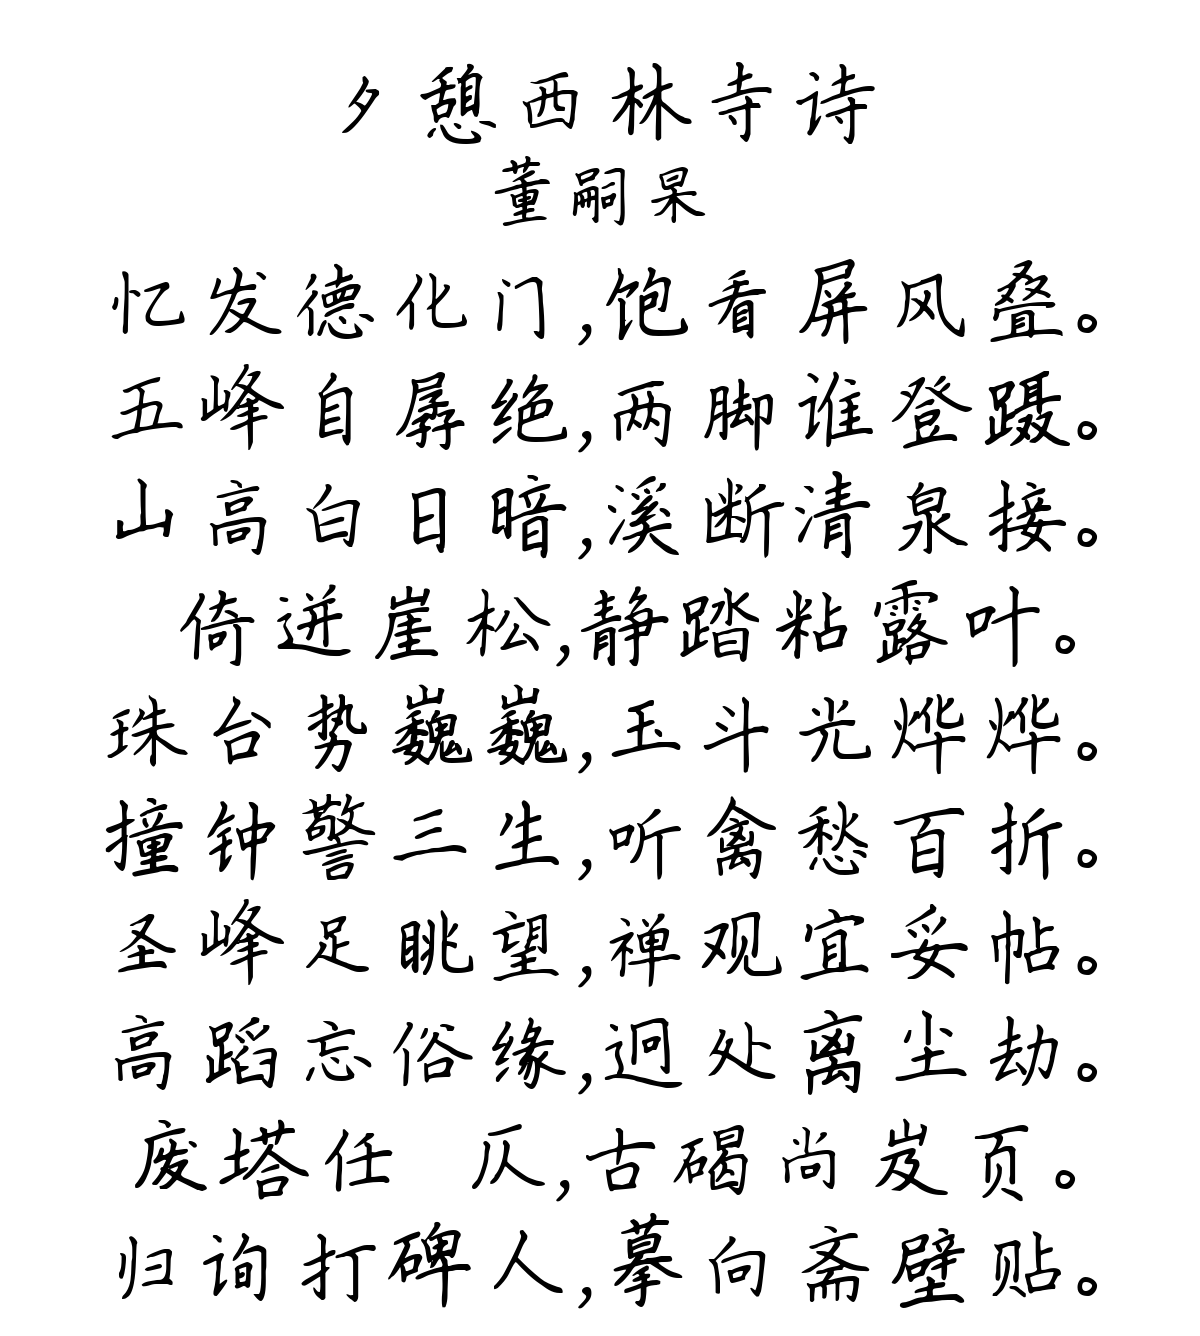 夕憩西林寺诗
董嗣杲
忆发德化门,饱看屏风叠。
五峰自孱绝,两脚谁登蹑。
山高白日暗,溪断清泉接。
倚迸崖松,静踏粘露叶。
珠台势巍巍,玉斗光烨烨。
撞钟警三生,听禽愁百折。
圣峰足眺望,禅观宜妥帖。
高蹈忘俗缘,迥处离尘劫。
废塔任 仄,古碣尚岌页。
归询打碑人,摹向斋壁贴。